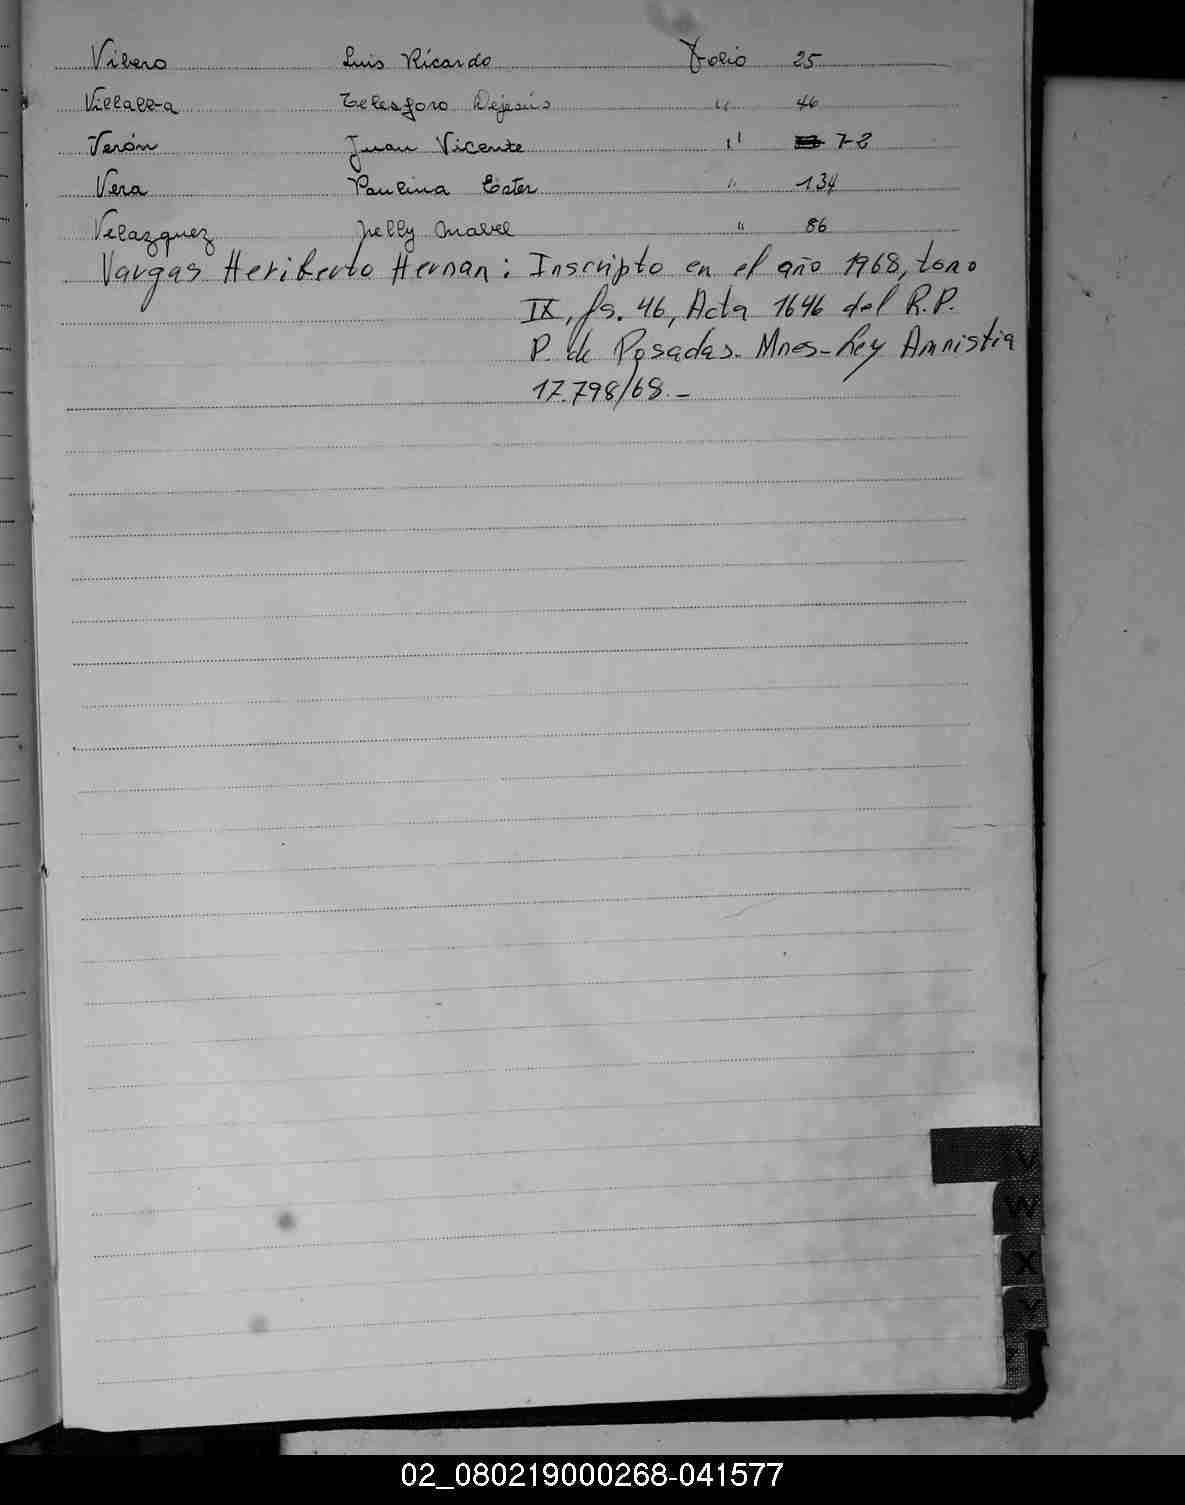 Vibero Luis Ricardo Folio 25
Villalba Telesforo Dejesús " 46
Verón Juan Vicente " 7-8
Vera Paulina Ester " 134
Velazquez Nelly Mabel " 86
Vargas Heriberto Hernan: Inscripto en el año 1968, tomo
IX, fs. 46, Acta 1646 del R.P.
P. de Posadas- Mnes- Ley Amnistia
17.798/68.-
V
W
X
Y
02_080219000268-041577